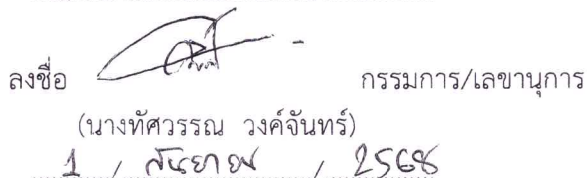 ลงชื่อ กรรมการ/เลขานุการ
(นางทัศวรรณ วงค์จันทร์)
1 / กันยายน / 2568